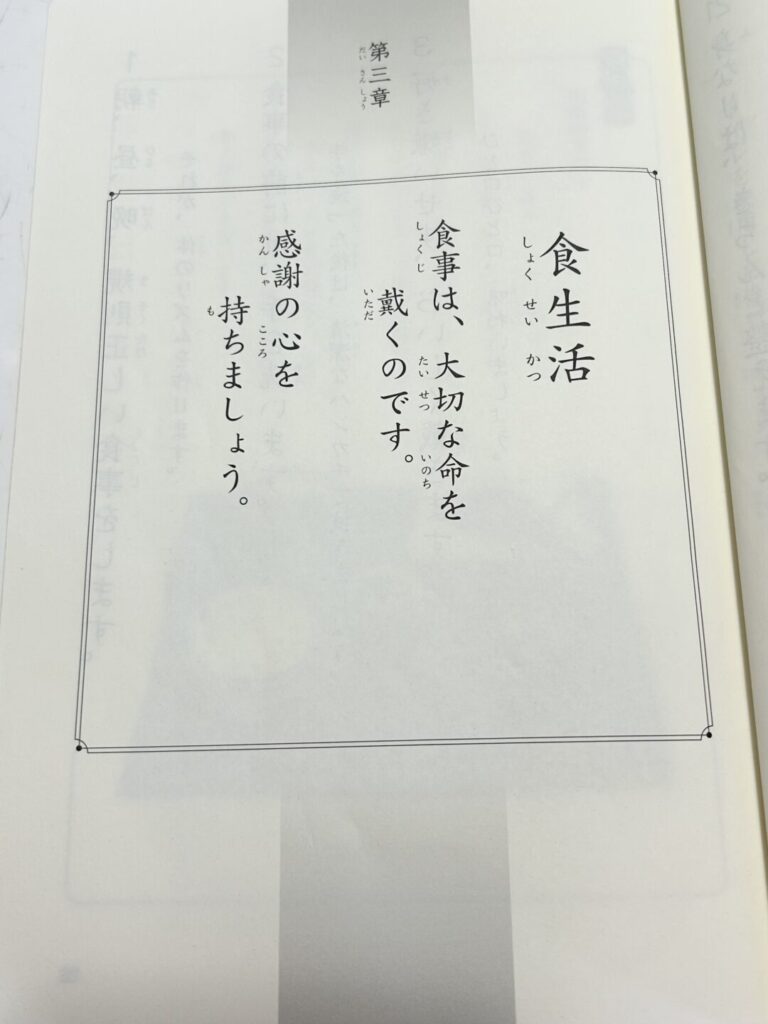 第三章
食生活
食事は、大切な命を
戴くのです。
感謝の心を
持ちましょう。